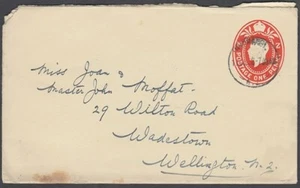 Miss Joan &
Master John Moffat.
29 Wilton Road
Wadestown
Wellington N.Z.
POSTAGE ONE PENNY